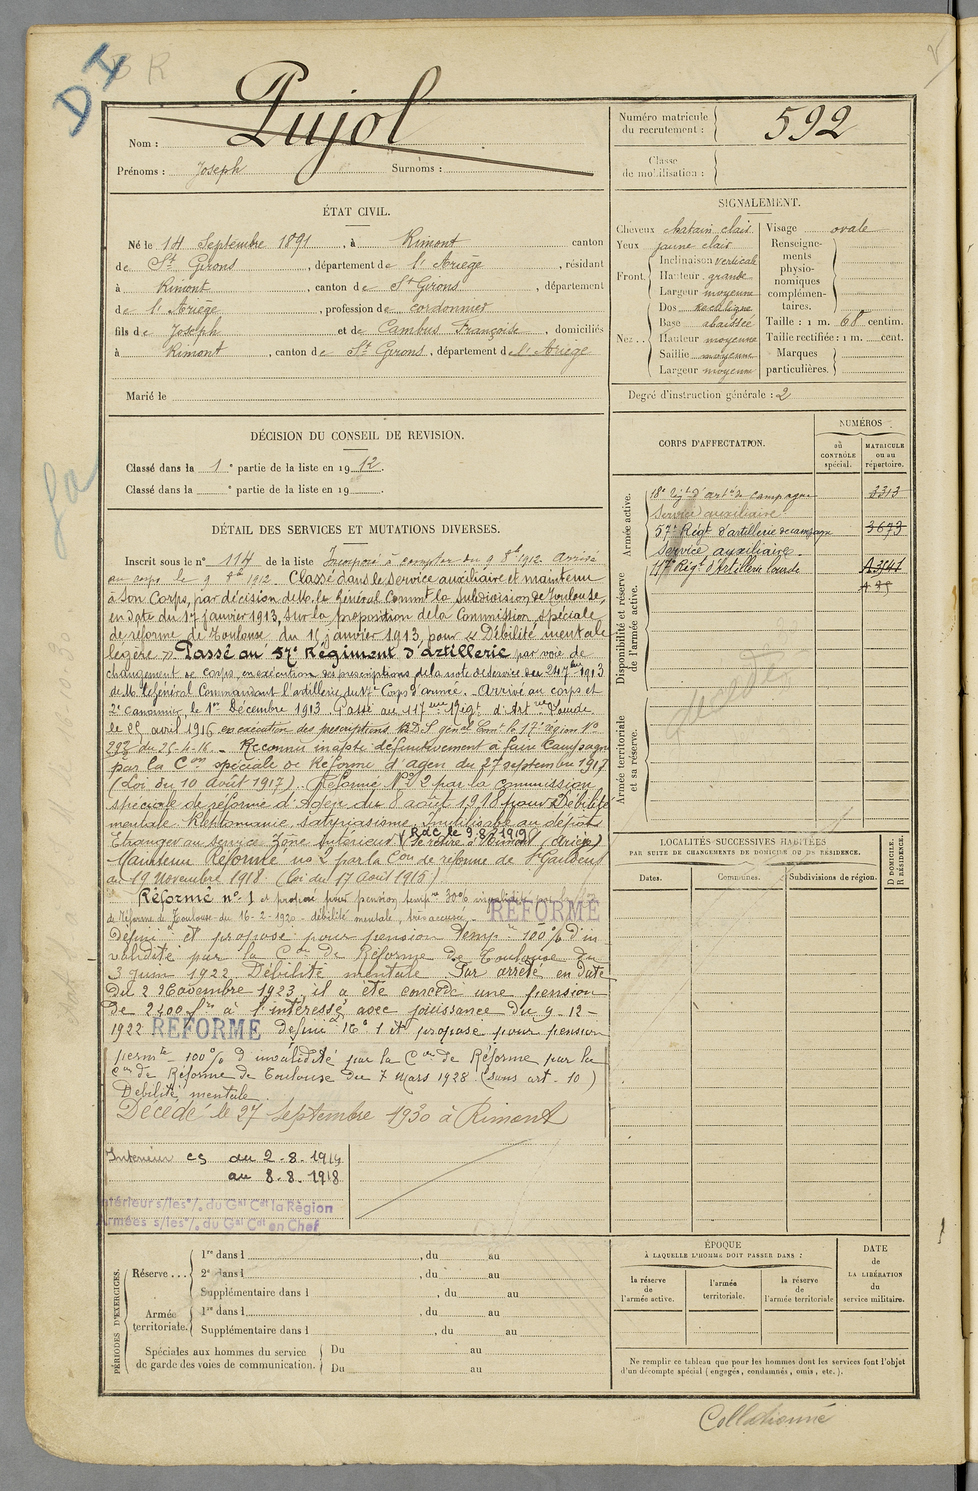 DI
BR
Pujol
Nom :
Prénoms : Joseph Surnoms :
ÉTAT CIVIL.
Né le 14 Septembre 1891, à Rimont canton
de St Girons, département de l'Ariège, résidant
à Rimont, canton de St Girons, département
de l'Ariège, profession de cordonnier
fils de Joseph et de Cambus Françoise, domiciliés
à Rimont, canton de St Girons, département de l'Ariège
Marié le
DÉCISION DU CONSEIL DE REVISION.
Classé dans la 1e partie de la liste en 1912.
Classé dans la e partie de la liste en 19
DÉTAIL DES SERVICES ET MUTATIONS DIVERSES.
Inscrit sous le no 114 de la liste Incorporé à compter du 9 8bre 1912 arrivé
au corps le 9 8bre 1912. Classé dans le service auxiliaire et maintenu
à son Corps, par décision de M. le Général Commt la Subdivision de Toulouse,
en date du 17 janvier 1913, sur la proposition de la Commission spéciale
de réforme de Toulouse du 15 janvier 1913, pour « Débilité mentale
légère ». Passé au 57e Régiment d'artillerie par voie de
changement de corps, en exécution des prescriptions de la note de service du 9bre 1913
de M. le Général Commandant l'artillerie du 17e Corps d'armée. - Arrivé au corps et
2e canonnier, le 1er Décembre 1913. Passé au 117me Régt d'Artie Lourde
le 25 avril 1916 en exécution des prescriptions du D.S. génal Comt la 17e région No
292 du 25-4-16. - Reconnu inapte définitivement à faire Campagne
par la Con spéciale de Réforme d'Agen du 27 septembre 1917
(Loi du 10 août 1917). Réformé No 2 par la commission
spéciale de réforme d'Agen du 8 août 1918 pour Débilité
mentale. Kleptomanie satyriasisme. Inutilisable au dépôt
Etranger au service Zone Intérieur. Rdc le 9.8.1919 (Se retire à Rimont (Ariège)
Maintenu Réformé no 2 par la Con de réforme de St Gaudens
du 19 novembre 1918. (Loi du 17 Août 1915)
Réformé no 1 et proposé pour pension temp re 30% invalidité
de Réforme de Toulouse du 16-2-1920 - débilité mentale, très accusée. -
RÉFORMÉ
Défini if et proposé pour pension Temp re 100% d'in-
validité par la Con de Réforme de Toulouse du
3 juin 1922. Débilité mentale. Par arrêté en date
du 2 Novembre 1923, il a été concédé une pension
de 2400 frs à l'intéressé avec jouissance du 9-12-
1922 RÉFORMÉ défini if No 1 et proposé pour pension
permte - 100% d'invalidité par la Con de Réforme par la
Con de Réforme de Toulouse du 7 Mars 1928 (sans art. 10)
Débilité mentale.
Décédé le 27 Septembre 1930 à Rimont
Intérieur CS du 2-8-1914
au 8-8-1918
Intérieur s/les o/. du Gal Cdt la Région
Armées s/les o/. du Gal Cdt en Chef
PÉRIODES D'EXERCICES.
Réserve ... 1re dans l , du au
2e dans l , du au
Supplémentaire dans l , du au
Armée territoriale. 1re dans l , du au
Supplémentaire dans l , du au
Spéciales aux hommes du service de garde des voies de communication. Du au
Du au
Numéro matricule du recrutement : 592
Classe de mobilisation :
SIGNALEMENT.
Cheveux chatain clair
Yeux jaune clair
Front. Inclinaison verticale
Hauteur grande
Largeur moyenne
Nez ... Dos rectiligne
Base abaissée
Hauteur moyenne
Saillie moyenne
Largeur moyenne
Visage ovale
Renseignements physionomiques complémentaires.
Taille : 1 m. 68 centim.
Taille rectifiée : 1 m. cent.
Marques particulières.
Degré d'instruction générale : 2
CORPS D'AFFECTATION.
NUMÉROS
au CONTRÔLE spécial.
MATRICULE ou au répertoire.
Armée active.
18e Régt d'artie de campagne 3313
Service auxiliaire.
57e Régt d'artillerie de campagne 3673
Service auxiliaire.
Disponibilité et réserve de l'armée active.
117e Régt d'Artillerie lourde
décédé
Armée territoriale et sa réserve.
LOCALITÉS SUCCESSIVES HABITÉES
PAR SUITE DE CHANGEMENTS DE DOMICILE OU DE RÉSIDENCE.
Dates. Communes. Subdivisions de région.
D DOMICILE.
R RÉSIDENCE.
ÉPOQUE
À LAQUELLE L'HOMME DOIT PASSER DANS :
la réserve de l'armée active.
l'armée territoriale.
la réserve de l'armée territoriale
DATE de LA LIBÉRATION du service militaire.
Ne remplir ce tableau que pour les hommes dont les services font l'objet
d'un décompte spécial (engagés, condamnés, omis, etc.).
Collationné